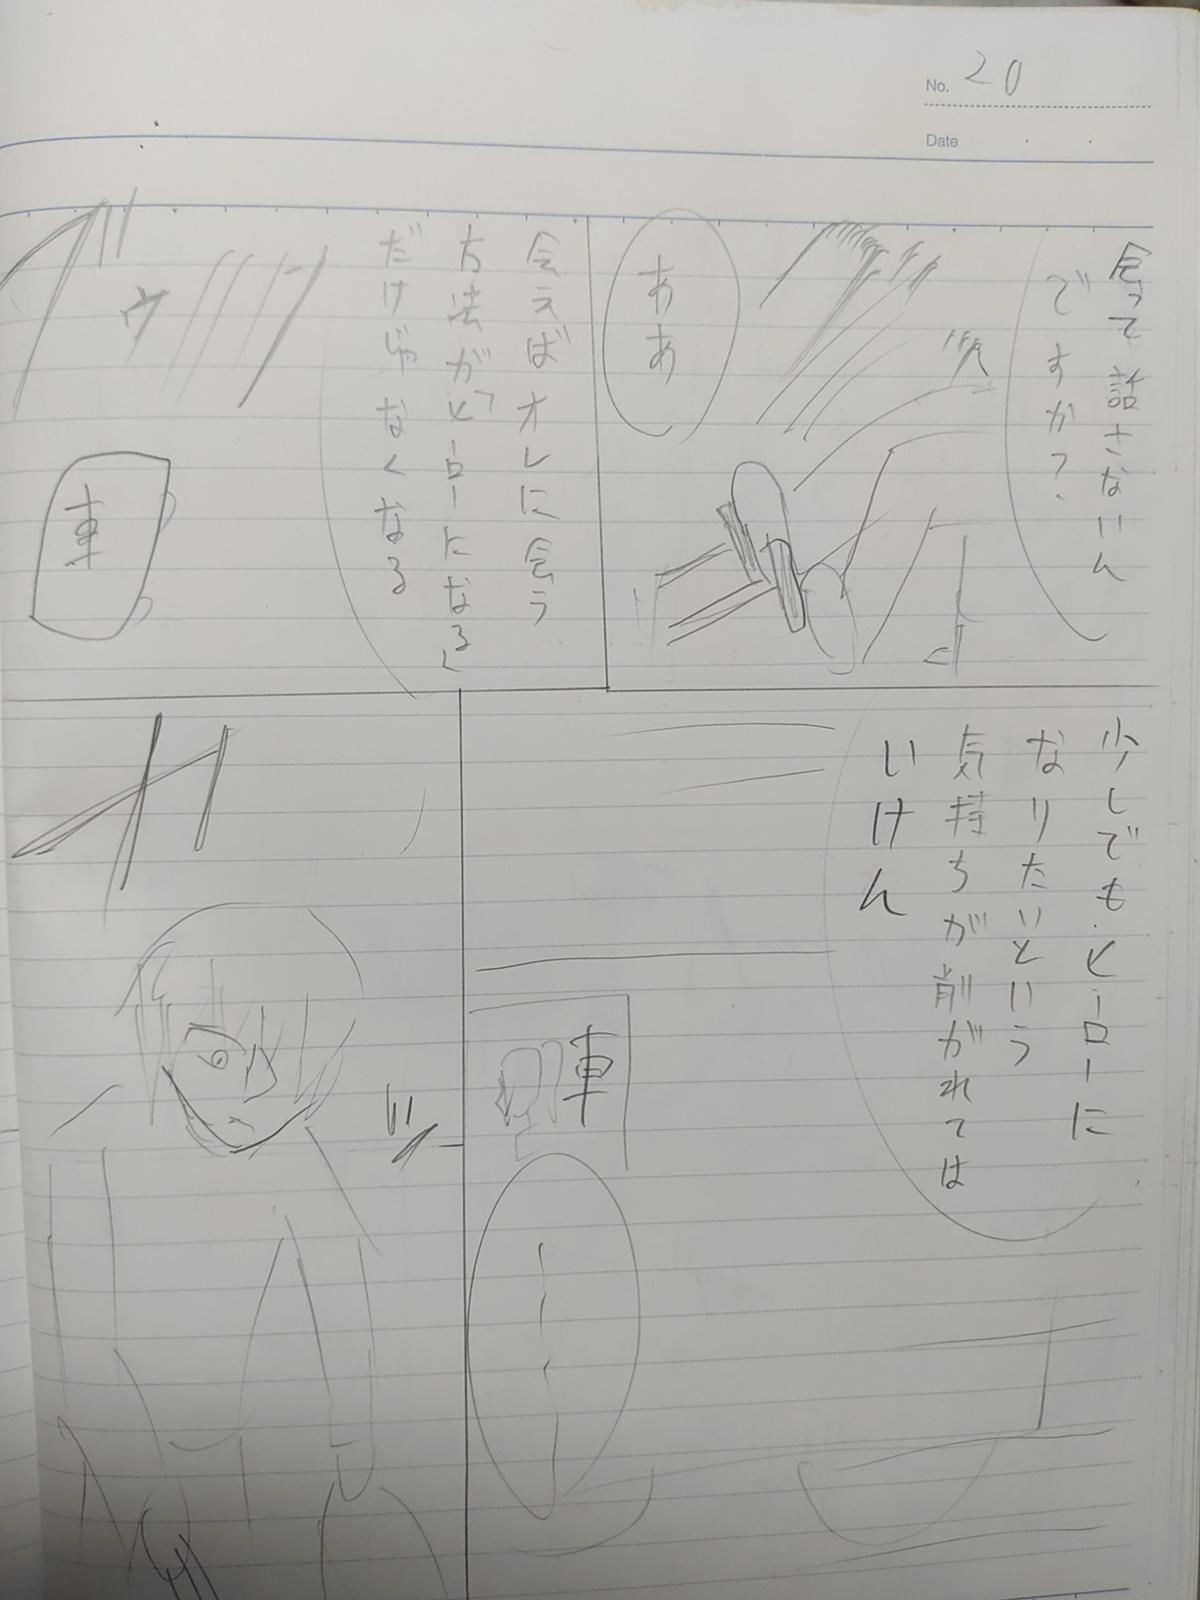 No. 20
Date
会って話さないん
ですか?
ああ
会えばオレに会う
方法が「ヒーローになる」
だけじゃなくなる
車
少しでもヒーローに
なりたいという
気持ちが削がれては
いけん
車